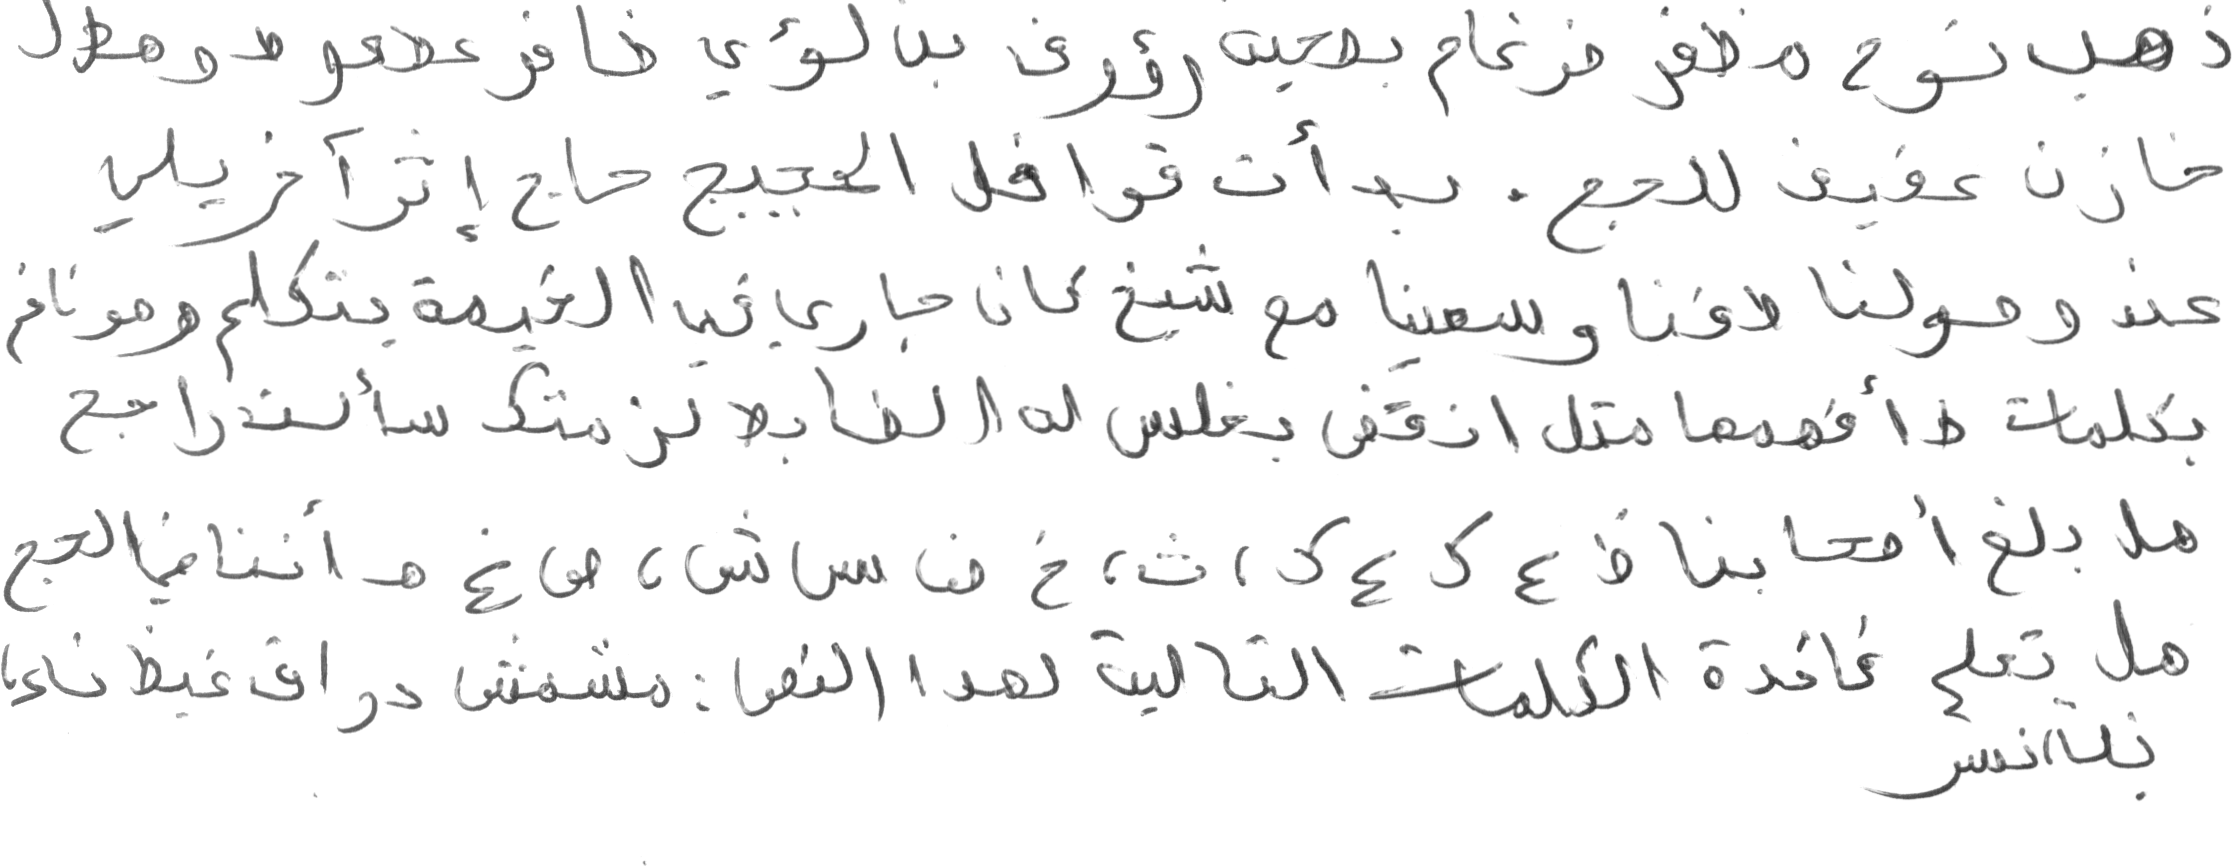 ذهب نوح مظفر ضرغام بصحبة رؤوف بن لؤي ظافر عطعوط وهلال
خازن عفيف للحج . بدأت قوافل الحجيج حاج إثر آخر يلبي
عند وصولنا طفنا وسعينا مع شيخ كان جاري في الخيمة يتكلم وهو نائم
بكلمات لا أفهمها مثل انقض بغلس له الضابط لز متك سألت راجح
هل بلغ أصحابنا ظ ء ك ء ك ، ث ، خ ض س ش ، ص غ هـ أننا في الحج
هل تعلم فائدة الكلمات التالية لهذا النص : مشمش دراق غيظ ناء
نبلة، نسر